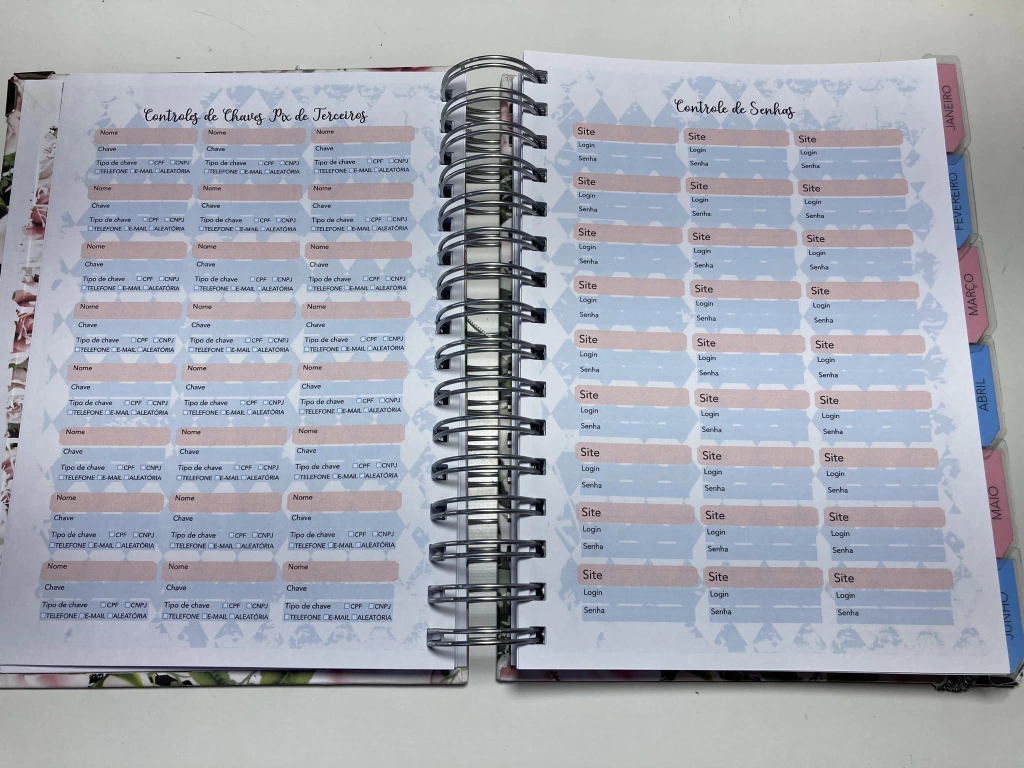 Controles de Chaves Pix de Terceiros
Nome Nome Nome
Chave Chave Chave
Tipo de chave CPF CNPJ Tipo de chave CPF CNPJ Tipo de chave CPF CNPJ
TELEFONE E-MAIL ALEATÓRIA TELEFONE E-MAIL ALEATÓRIA TELEFONE E-MAIL ALEATÓRIA
Nome Nome Nome
Chave Chave Chave
Tipo de chave CPF CNPJ Tipo de chave CPF CNPJ Tipo de chave CPF CNPJ
TELEFONE E-MAIL ALEATÓRIA TELEFONE E-MAIL ALEATÓRIA TELEFONE E-MAIL ALEATÓRIA
Nome Nome Nome
Chave Chave Chave
Tipo de chave CPF CNPJ Tipo de chave CPF CNPJ Tipo de chave CPF CNPJ
TELEFONE E-MAIL ALEATÓRIA TELEFONE E-MAIL ALEATÓRIA TELEFONE E-MAIL ALEATÓRIA
Nome Nome Nome
Chave Chave Chave
Tipo de chave CPF CNPJ Tipo de chave CPF CNPJ Tipo de chave CPF CNPJ
TELEFONE E-MAIL ALEATÓRIA TELEFONE E-MAIL ALEATÓRIA TELEFONE E-MAIL ALEATÓRIA
Nome Nome Nome
Chave Chave Chave
Tipo de chave CPF CNPJ Tipo de chave CPF CNPJ Tipo de chave CPF CNPJ
TELEFONE E-MAIL ALEATÓRIA TELEFONE E-MAIL ALEATÓRIA TELEFONE E-MAIL ALEATÓRIA
Nome Nome Nome
Chave Chave Chave
Tipo de chave CPF CNPJ Tipo de chave CPF CNPJ Tipo de chave CPF CNPJ
TELEFONE E-MAIL ALEATÓRIA TELEFONE E-MAIL ALEATÓRIA TELEFONE E-MAIL ALEATÓRIA
Nome Nome Nome
Chave Chave Chave
Tipo de chave CPF CNPJ Tipo de chave CPF CNPJ Tipo de chave CPF CNPJ
TELEFONE E-MAIL ALEATÓRIA TELEFONE E-MAIL ALEATÓRIA TELEFONE E-MAIL ALEATÓRIA
Nome Nome Nome
Chave Chave Chave
Tipo de chave CPF CNPJ Tipo de chave CPF CNPJ Tipo de chave CPF CNPJ
TELEFONE E-MAIL ALEATÓRIA TELEFONE E-MAIL ALEATÓRIA TELEFONE E-MAIL ALEATÓRIA
Controle de Senhas
Site Site Site
Login Login Login
Senha Senha Senha
Site Site Site
Login Login Login
Senha Senha Senha
Site Site Site
Login Login Login
Senha Senha Senha
Site Site Site
Login Login Login
Senha Senha Senha
Site Site Site
Login Login Login
Senha Senha Senha
Site Site Site
Login Login Login
Senha Senha Senha
Site Site Site
Login Login Login
Senha Senha Senha
Site Site Site
Login Login Login
Senha Senha Senha
Site Site Site
Login Login Login
Senha Senha Senha
JANEIRO
FEVEREIRO
MARÇO
ABRIL
MAIO
JUNHO